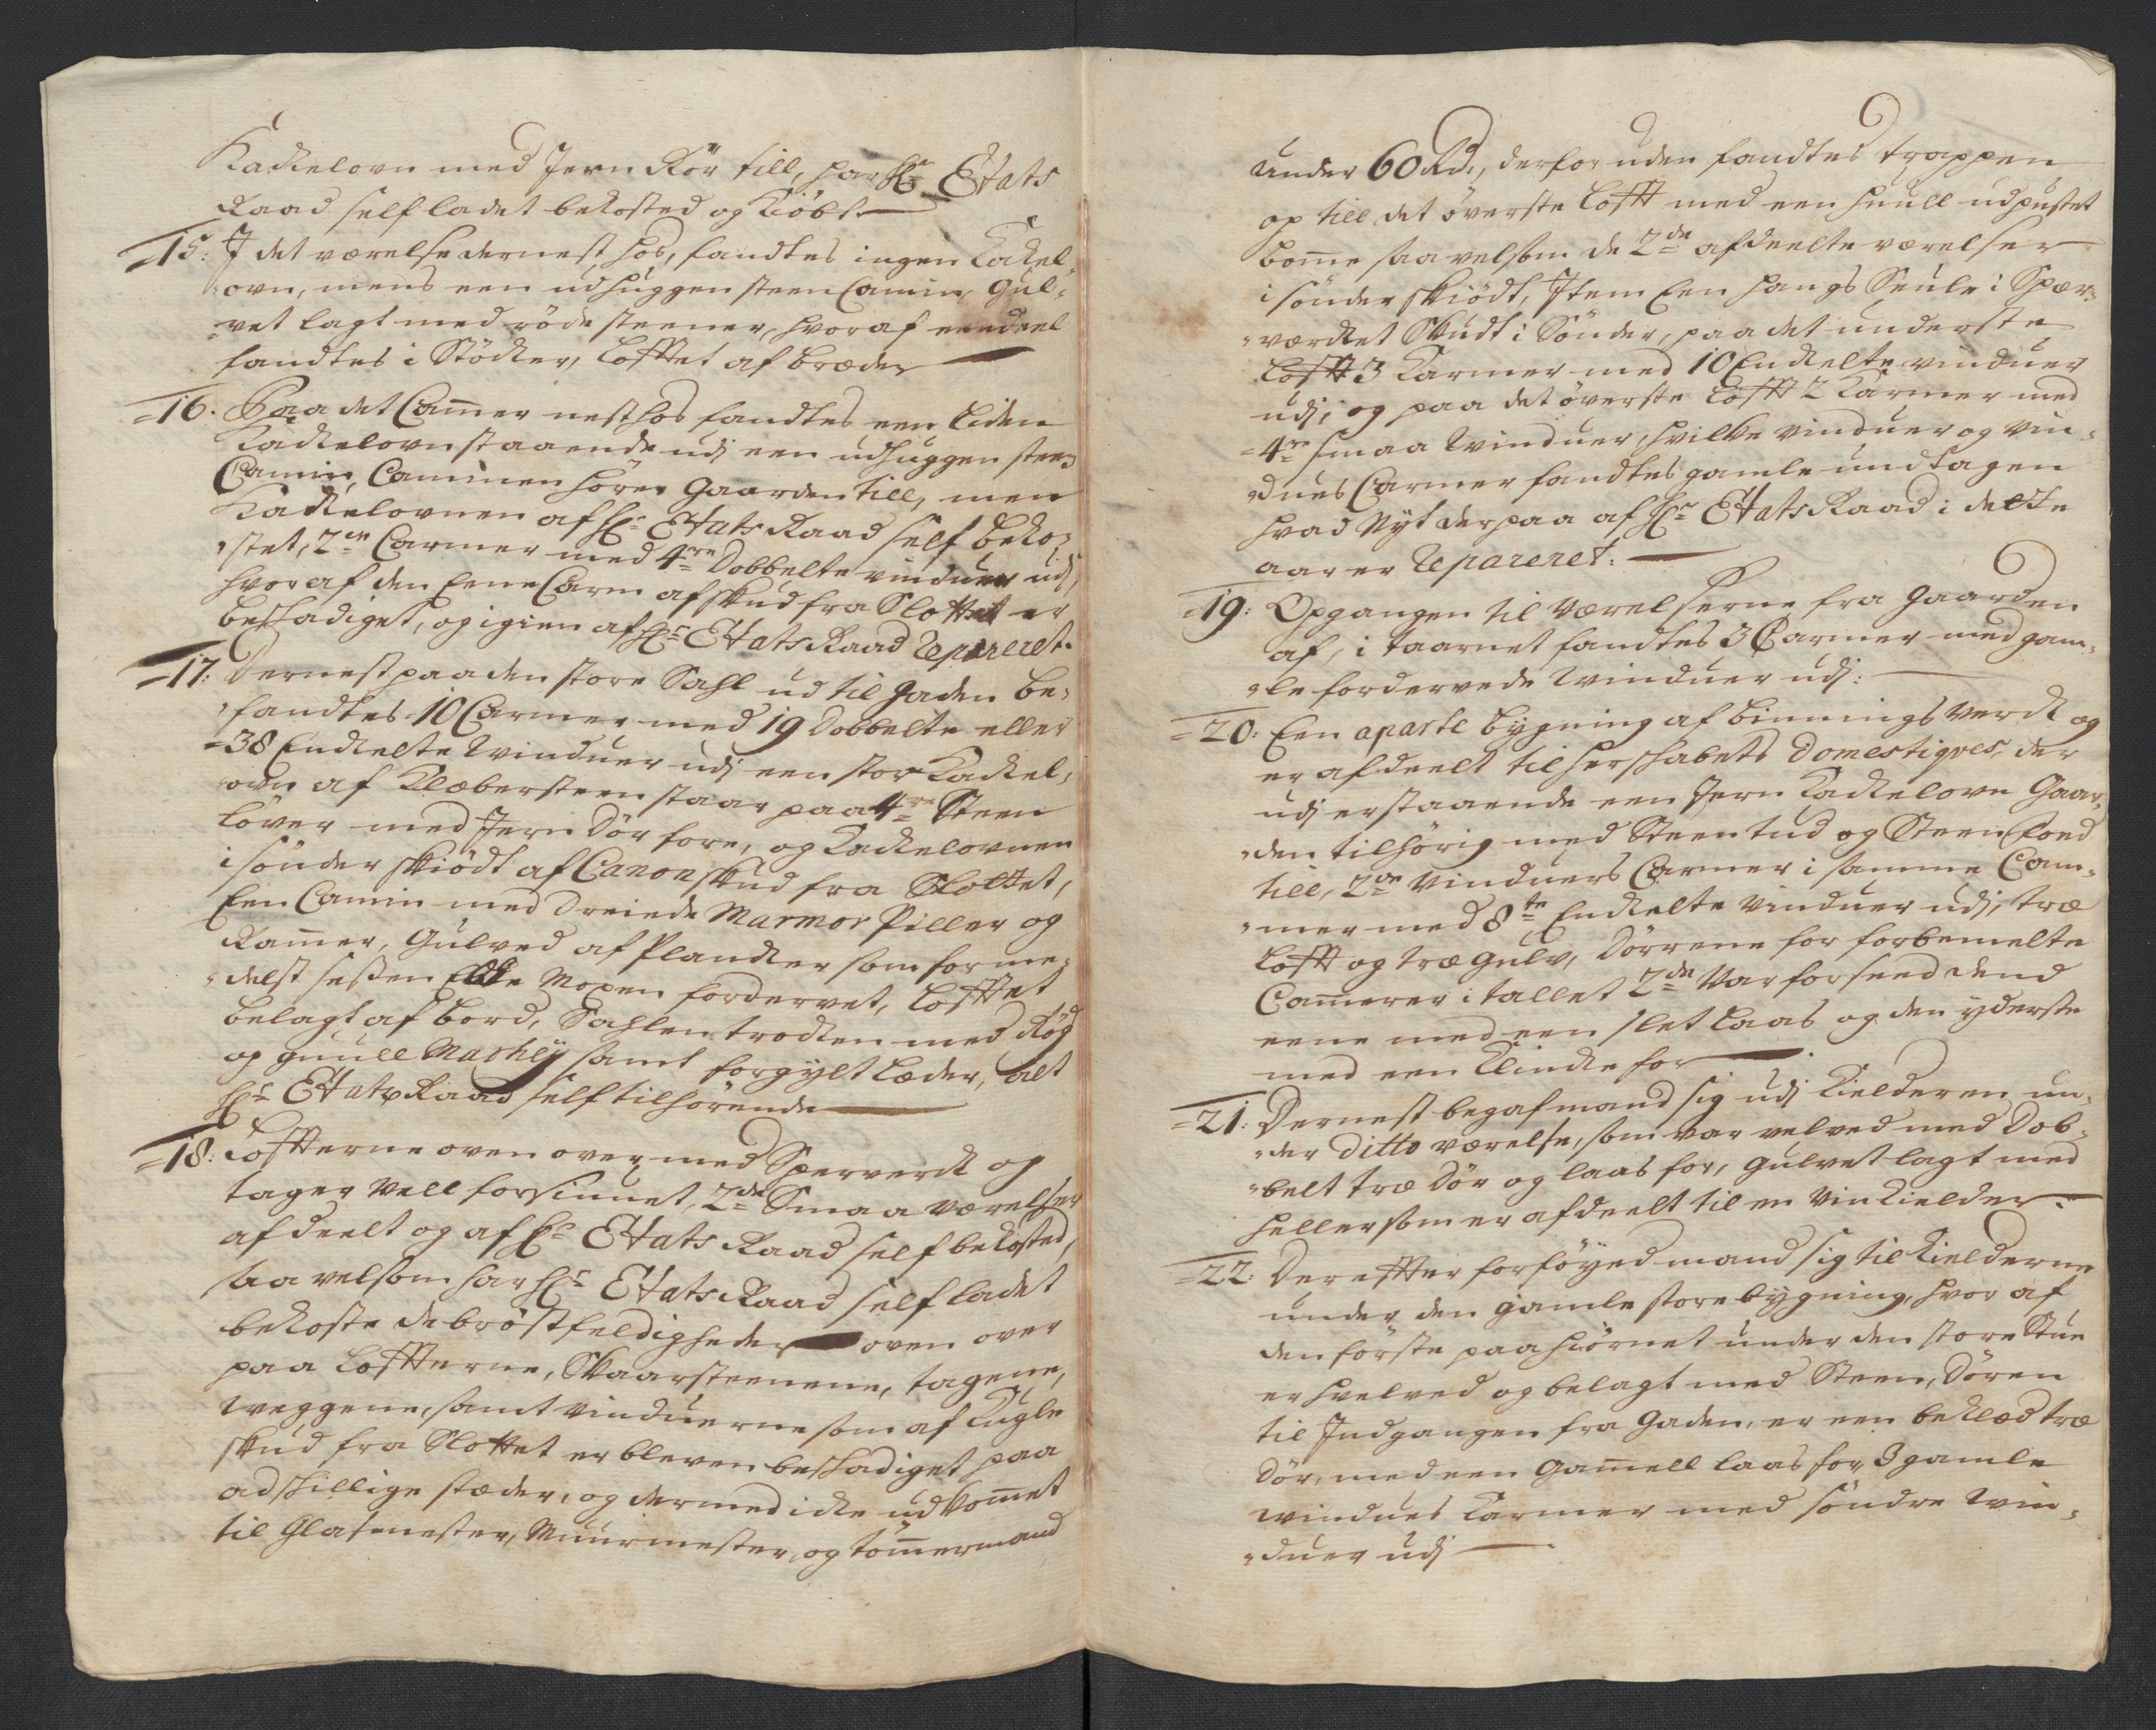 Kackelovn med Jern Rör till, har Hr Etats
Raad self ladet bekosted og Kiöbt
15: J det værelse dernest hos, fandtes ingen Kakel¬
ovn, mens een udhuggen steen Camin, Gul¬
vet lagt med röde steener, hvoraf eendeel
fandtes i Stöcker, Lofftet af bræder
16. Paa det Cam̄er nest hos fandtes een liden
Kackelovn staaende udj een udhuggen steen
Camin, Caminen hörer Gaarden till, men
Kackelovnen af Hr Etats Raad self beko¬
stet, 2de Carmer med 4re Dobbelte vinduer udj,
hvoraf den Eene Carm af skud fra Slottet er
beskadiget, og igien af Hr Etats Raad Repareret.
17: Dernest paa den store Sahl ud til gaden be¬
fandtes 10 Carmer med 19 Dobbelte eller
38 Enckelte Winduer udj een stor Kackel¬
ovn af Klæbersteen staar paa 4re Steen
Löver med Jern Dör fore, og Kackelovnen
isönder skiödt af Canon skud fra Slottet,
Een Camin med Dreiede Marmor Piller og
Ram̄er, Gulved af Plancker som forme¬
delst seßen Elde Mopen fordervet, Lofftet
belagt af bord, Sahlen trocken med Röd
og guull Machey samt forgylt Læder, alt
Hr Etatz Raad self tilhörende
18: Loffterne oven over med Sperverck og
tager Vell forsiunet, 2de Smaa værelser
afdeelt og af Hr Etats Raad self bekosted,
saavelsom har Hr Etats Raad self ladet
bekoste de bröstfeldigheder oven over
paa Loffterne, Skaarsteenene, tagene,
Weggene, samt vinduerne som af Kugle
skud fra Slottet er bleven beskadiget paa
adskillige stæder, og dermed icke udkom̄et
til Glasmester, Muurmester, og töm̄ermand
under 60 Rd., derforuden fandtes trappen
op till det överste Lofft med een huull udpustet
bom̄e saavelsom de 2de afdeelte værelser
isönder skiödt, Jtem Een hangs Seule i Spær¬
værcket Skudt i Sönder, paa det underste
Lofft 3 Karmer med 10 Enckelte vinduer
udj, og paa det överste Lofft 2 Karmer med
4re smaa Winduer, hvilke vinduer og vin¬
dues Carmer fandtes gamle undtagen
hvad Nyt derpaa af Hr Etats Raad i dette
aar er Repareret.
19: Opgangen til Værelserne fra Gaarden
af, i taarnet fandtes 3 Carmer med gam¬
le fordervede Winduer udj:
20: Een aparte bygning af bindings Verck og
er afdeelt til herskabets Domestiqver, der
udj er staaende een Jern Kackelovn Gaar¬
den tilhörig med Steen tud og Steen Foed
till, 2de Vinduers Carmer i samme Cam¬
mer med 8te Enckelte Vinduer udj, træ
Lofft og træ gulv, Dörrene for forbemelte
Cam̄erer i tallet 2de Var forseed dend
eene med een slet Laas og den yderste
med een Klincke for
21: Dernest begaf mand sig udj Kielderen un¬
der ditto værelse, som var velved med Dob¬
belt træ Dör og laas for, gulvet lagt med
heller som er afdeelt til en Vin Kielder.
22: Derefter forföyed mand sig til Kielderne
under den gamle store bygning, hvor af
den förste paa hiörnet under den store Stue
er hvelved og belagt med Steen, Dören
til Indgangen fra Gaden, er een beklæd træ
Dör, med een Gam̄ell laas for, 3 gamle
windues Karmer med söndre Win¬
duer udj